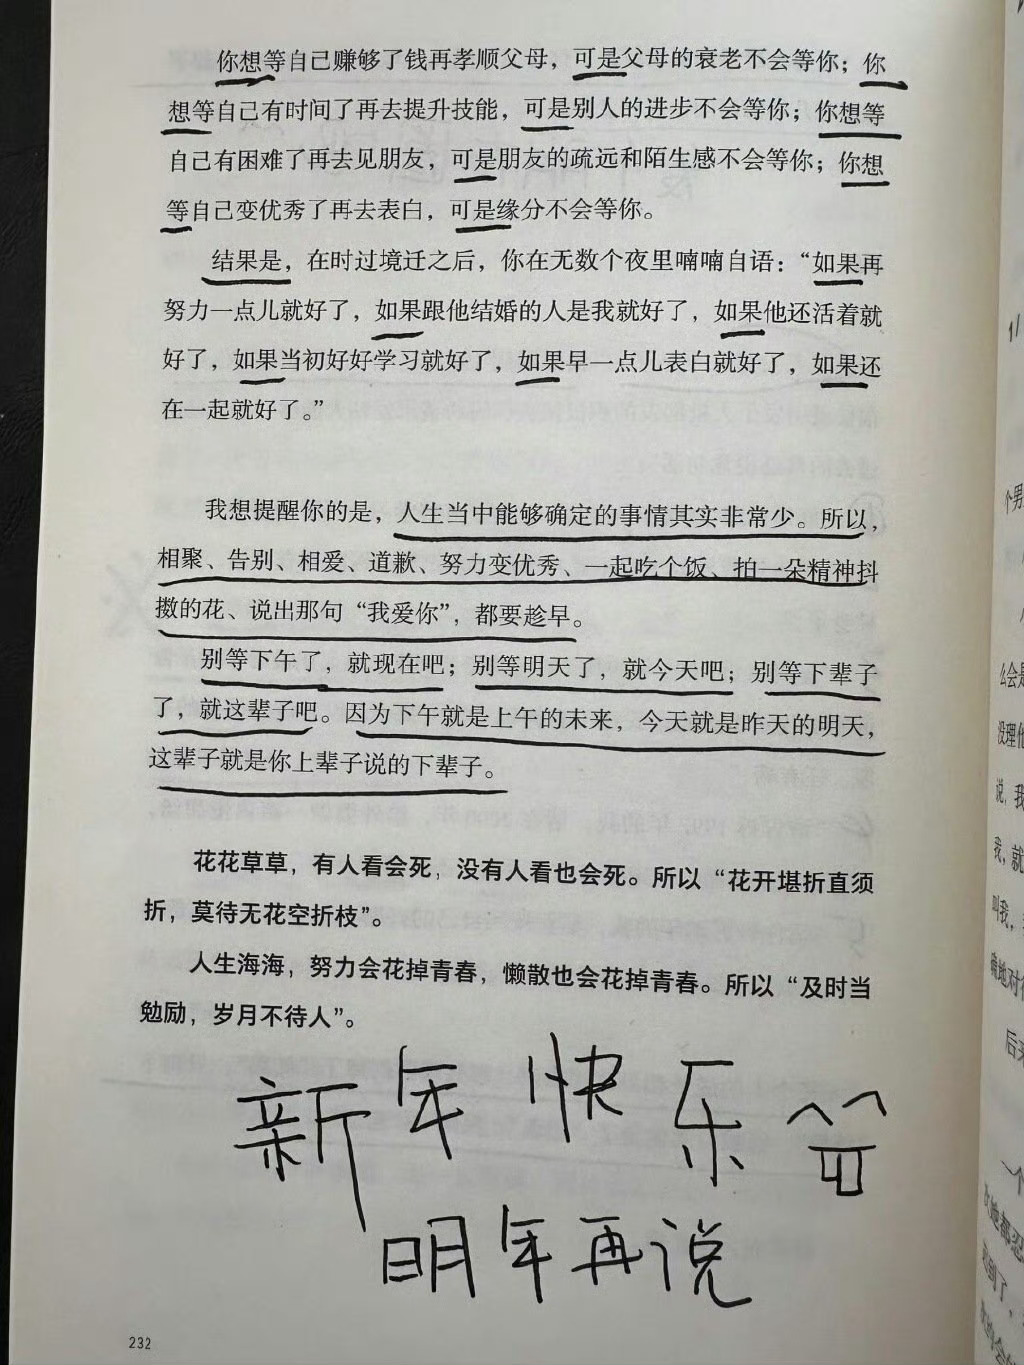 你想等自己赚够了钱再孝顺父母，可是父母的衰老不会等你；你
想等自己有时间了再去提升技能，可是别人的进步不会等你；你想等
自己有困难了再去见朋友，可是朋友的疏远和陌生感不会等你；你想
等自己变优秀了再去表白，可是缘分不会等你。
结果是，在时过境迁之后，你在无数个夜里喃喃自语：“如果再
努力一点儿就好了，如果跟他结婚的人是我就好了，如果他还活着就
好了，如果当初好好学习就好了，如果早一点儿表白就好了，如果还
在一起就好了。”
我想提醒你的是，人生当中能够确定的事情其实非常少。所以，
相聚、告别、相爱、道歉、努力变优秀、一起吃个饭、拍一朵精神抖
擞的花、说出那句“我爱你”，都要趁早。
别等下午了，就现在吧；别等明天了，就今天吧；别等下辈子
了，就这辈子吧。因为下午就是上午的未来，今天就是昨天的明天，
这辈子就是你上辈子说的下辈子。
花花草草，有人看会死，没有人看也会死。所以“花开堪折直须
折，莫待无花空折枝”。
人生海海，努力会花掉青春，懒散也会花掉青春。所以“及时当
勉励，岁月不待人”。
新年快乐
明年再说
232
个男
么会是
没理他
说，我
我，就
叫我，
后来
一个